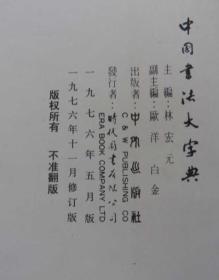 中国书法大字典
主 编：林 宏 元
副主編：歐 洋 白 金
出版者：中外出版社
C & E PUBLISHING CO
發行者：時代圖書有限公司
ERA BOOK COMPANY LTD
一九七六年五月版
一九七六年十一月修订版
版权所有 不准翻版